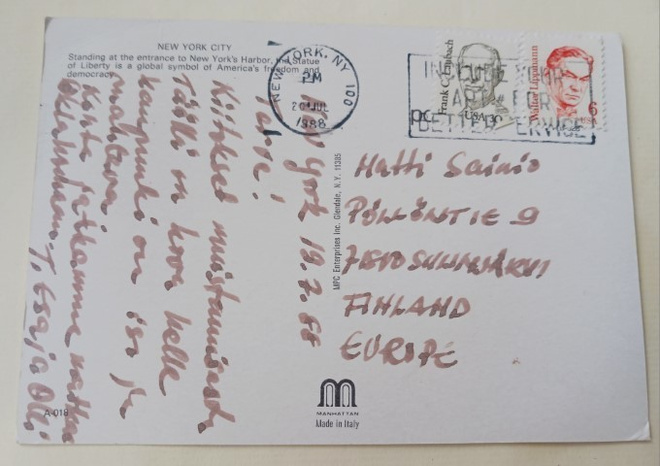 NEW YORK CITY
Standing at the entrance to New York's Harbor, the Statue
of Liberty is a global symbol of America's freedom and
democracy.
NEW YORK, NY 100
PM
20 JUL
1988
INCLUDE YOUR
FOR
BETTER SERVICE
Frank C. Laubach
USA 30
Walter Lippmann
6 USA
pc
York 19.7.88
Terve!
Kiitokset muistamisesta
Täällä on kova helle
kaupunki on iso ja
mahtava.
Oklahomaan. T. Esa ja Olli
MPC Enterprises Inc. Glendale, N.Y. 11385
Matti Sainio
PÖLLÖNTIE 9
SUMMAJÄRVI
FINLAND
EUROPE
A-018
MANHATTAN
Made in Italy